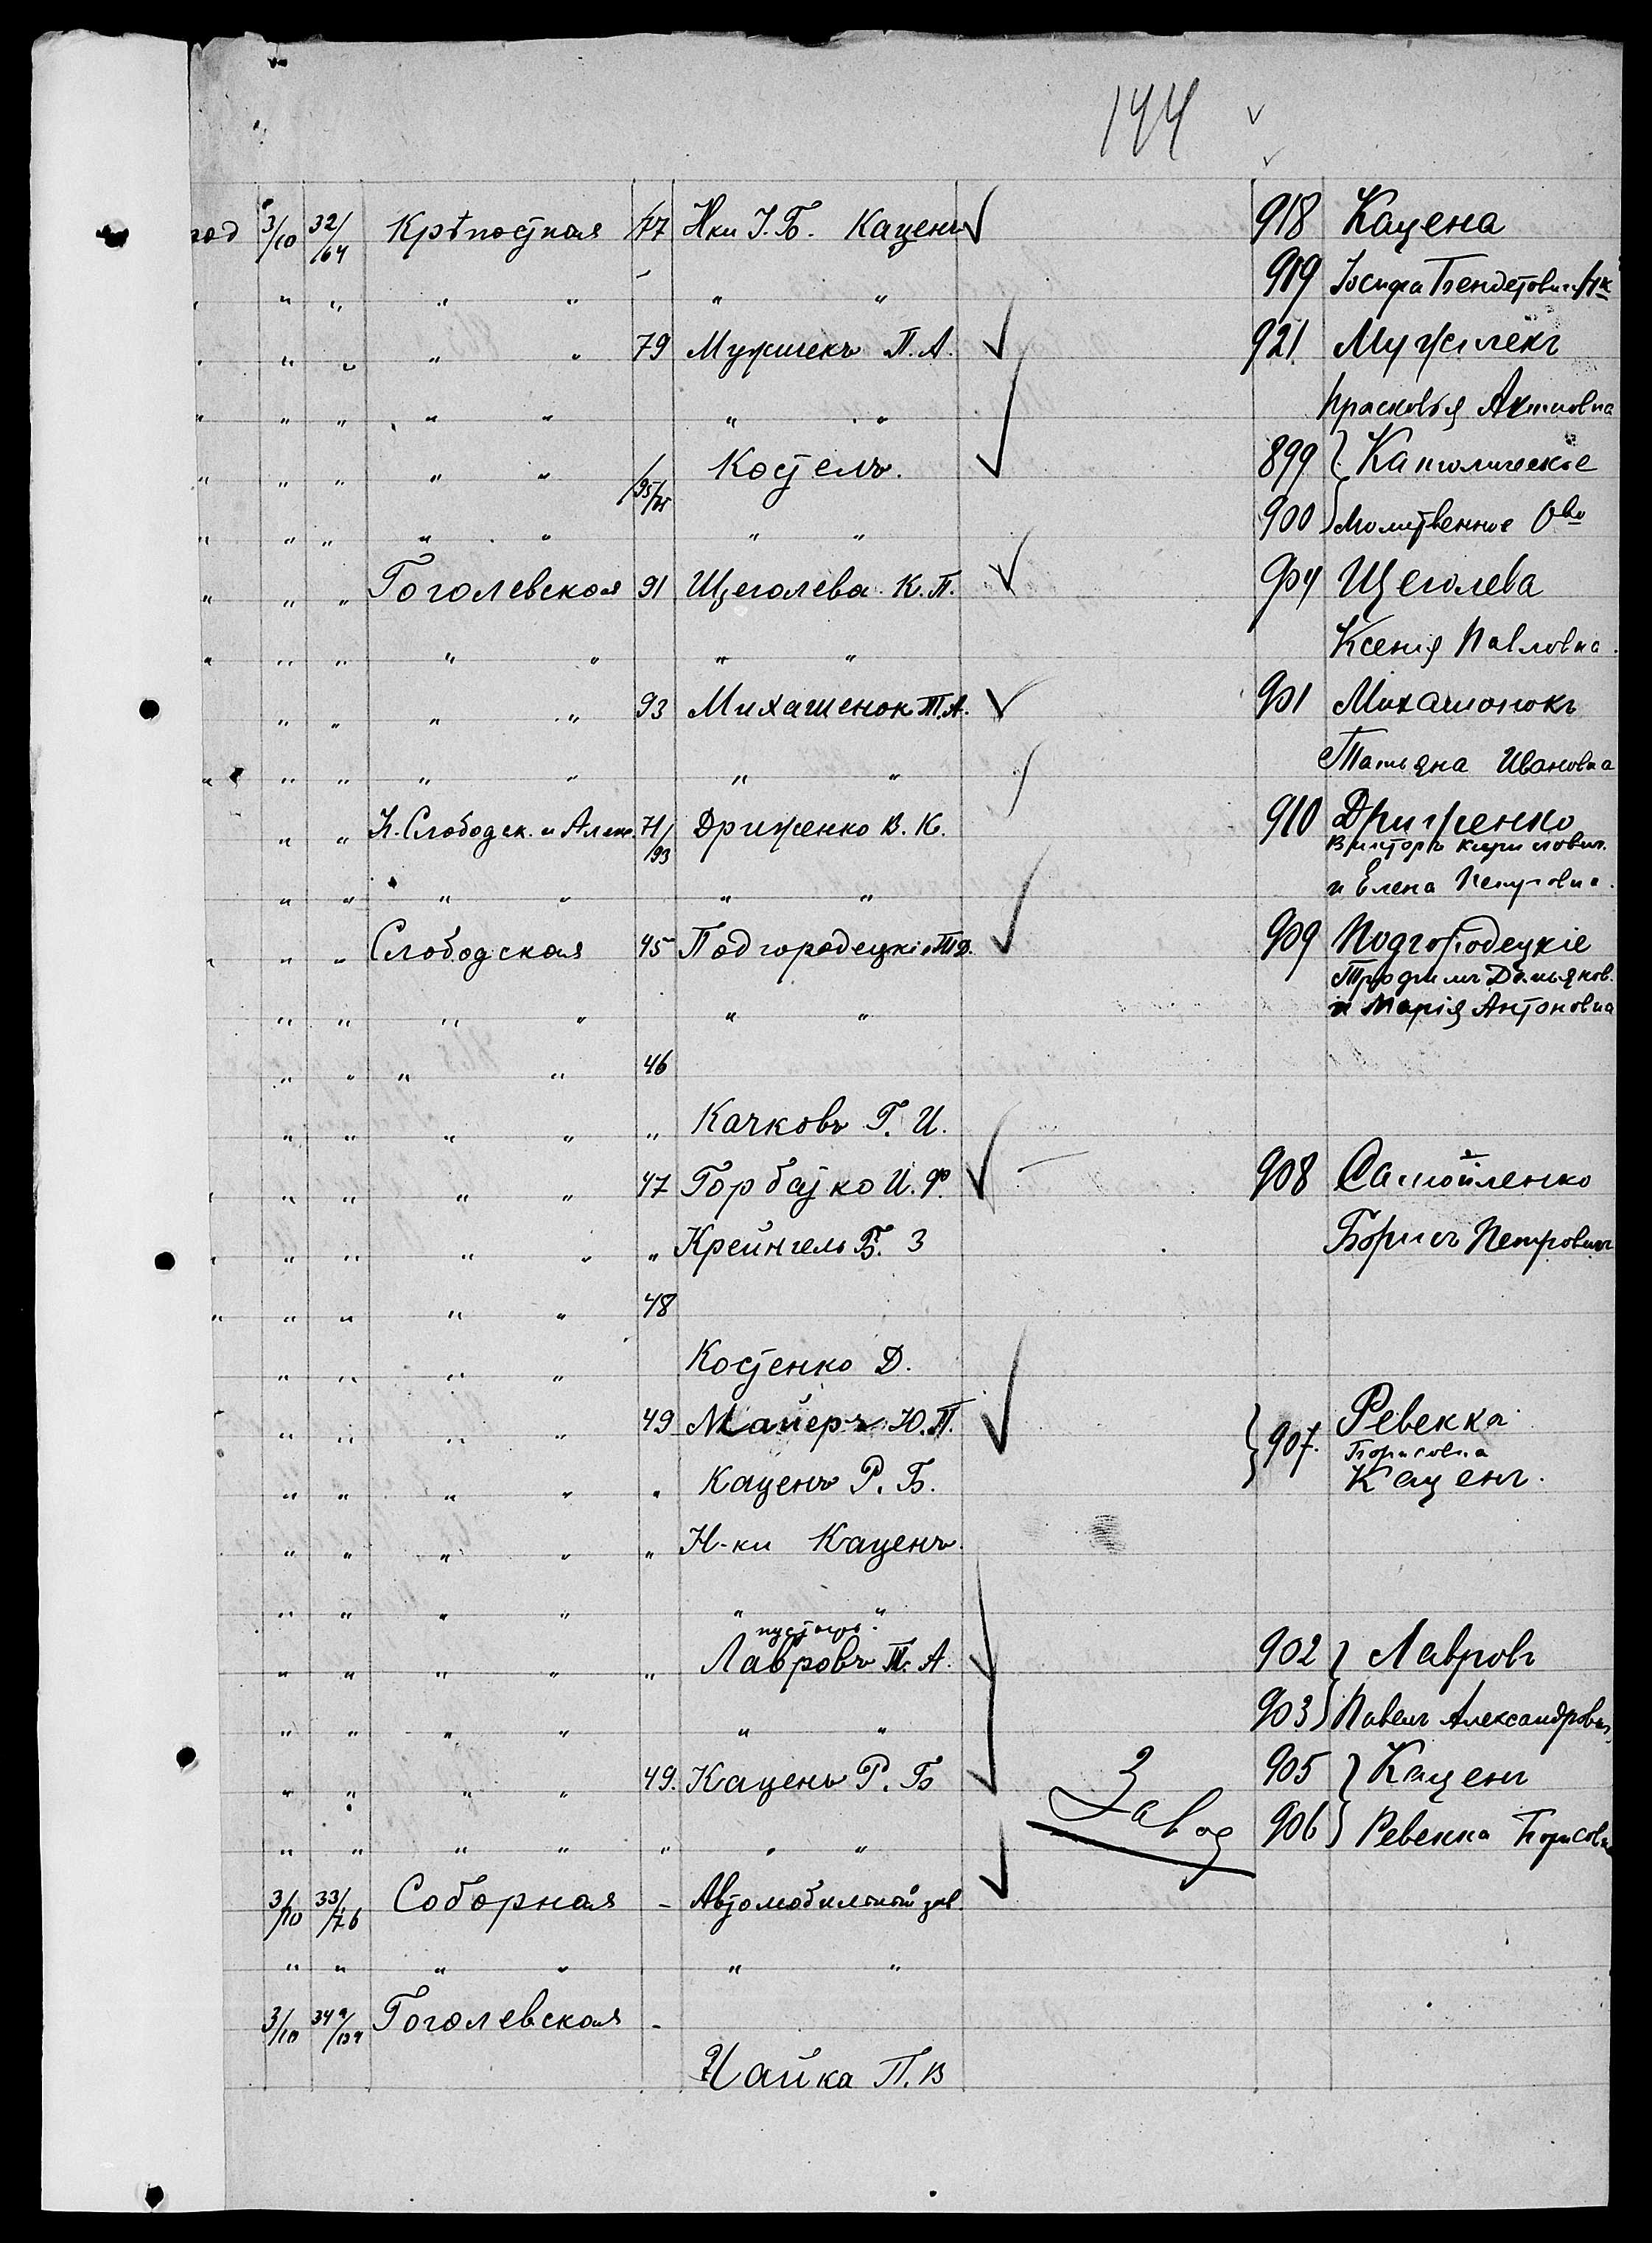 144
год 3/10 32/64 Крѣпостная 77 Н-ки І. Б. Каценъ 918 Кацена
" " " " " " 919 Іосифа Бендетович Н-к
" " " " " 79 Мужичекъ П. А. 921 Мужичекъ
" " " " " " " Прасковья Акимовна
" " " " " 95/75 Костелъ. 899 Католическое
" " " " " " " 900 Молитвенное О-во
" " " Гоголевская 91 Щеголева К. П. 904 Щеголева
" " " " " " " Ксенія Павловна.
" " " " 93 Михашенок Т. А. 901 Михашонокъ
" " " " " " " Татьяна Ивановна
" " К. Слободск. и Алекс. 71/93 Дриженко В. К. 910 Дриженко
Викторъ Кириллович.
" " " " " " и Елена Петровна.
" " " Слободская 45 Подгородецкіе Т. Д. 909 Подгородецкіе
Трофимъ Демьянов.
" " " " " " и Марія Антоновна
" " " " 46
" " " " " Качковъ Г. И.
" " " " " 47 Горбатко И. Ф. 908 Самойленко
" " " " " " Крейнгель Б. З Борисъ Петрович
" " " " " 48
" " " " Костенко Д.
" " " " 49 Майеръ Ю. П. 907. Ревекка
Борисовна
" " " " " Каценъ Р. Б. Каценъ.
" " " " " Н-ки Каценъ.
" " " " " "
пустырь.
" " " " " Лавровъ П. А. 902 Лавровъ
" " " " " " 903 Павелъ Александрович
" " " " 49. Каценъ Р. Б 905 Каценъ
Завод
" " " " " " " 906 Ревекка Борисовна
3/10 33/76 Соборная - Автомобильный зав.
" " " " " "
3/10 34а/104 Гоголевская -
Чайка П. В